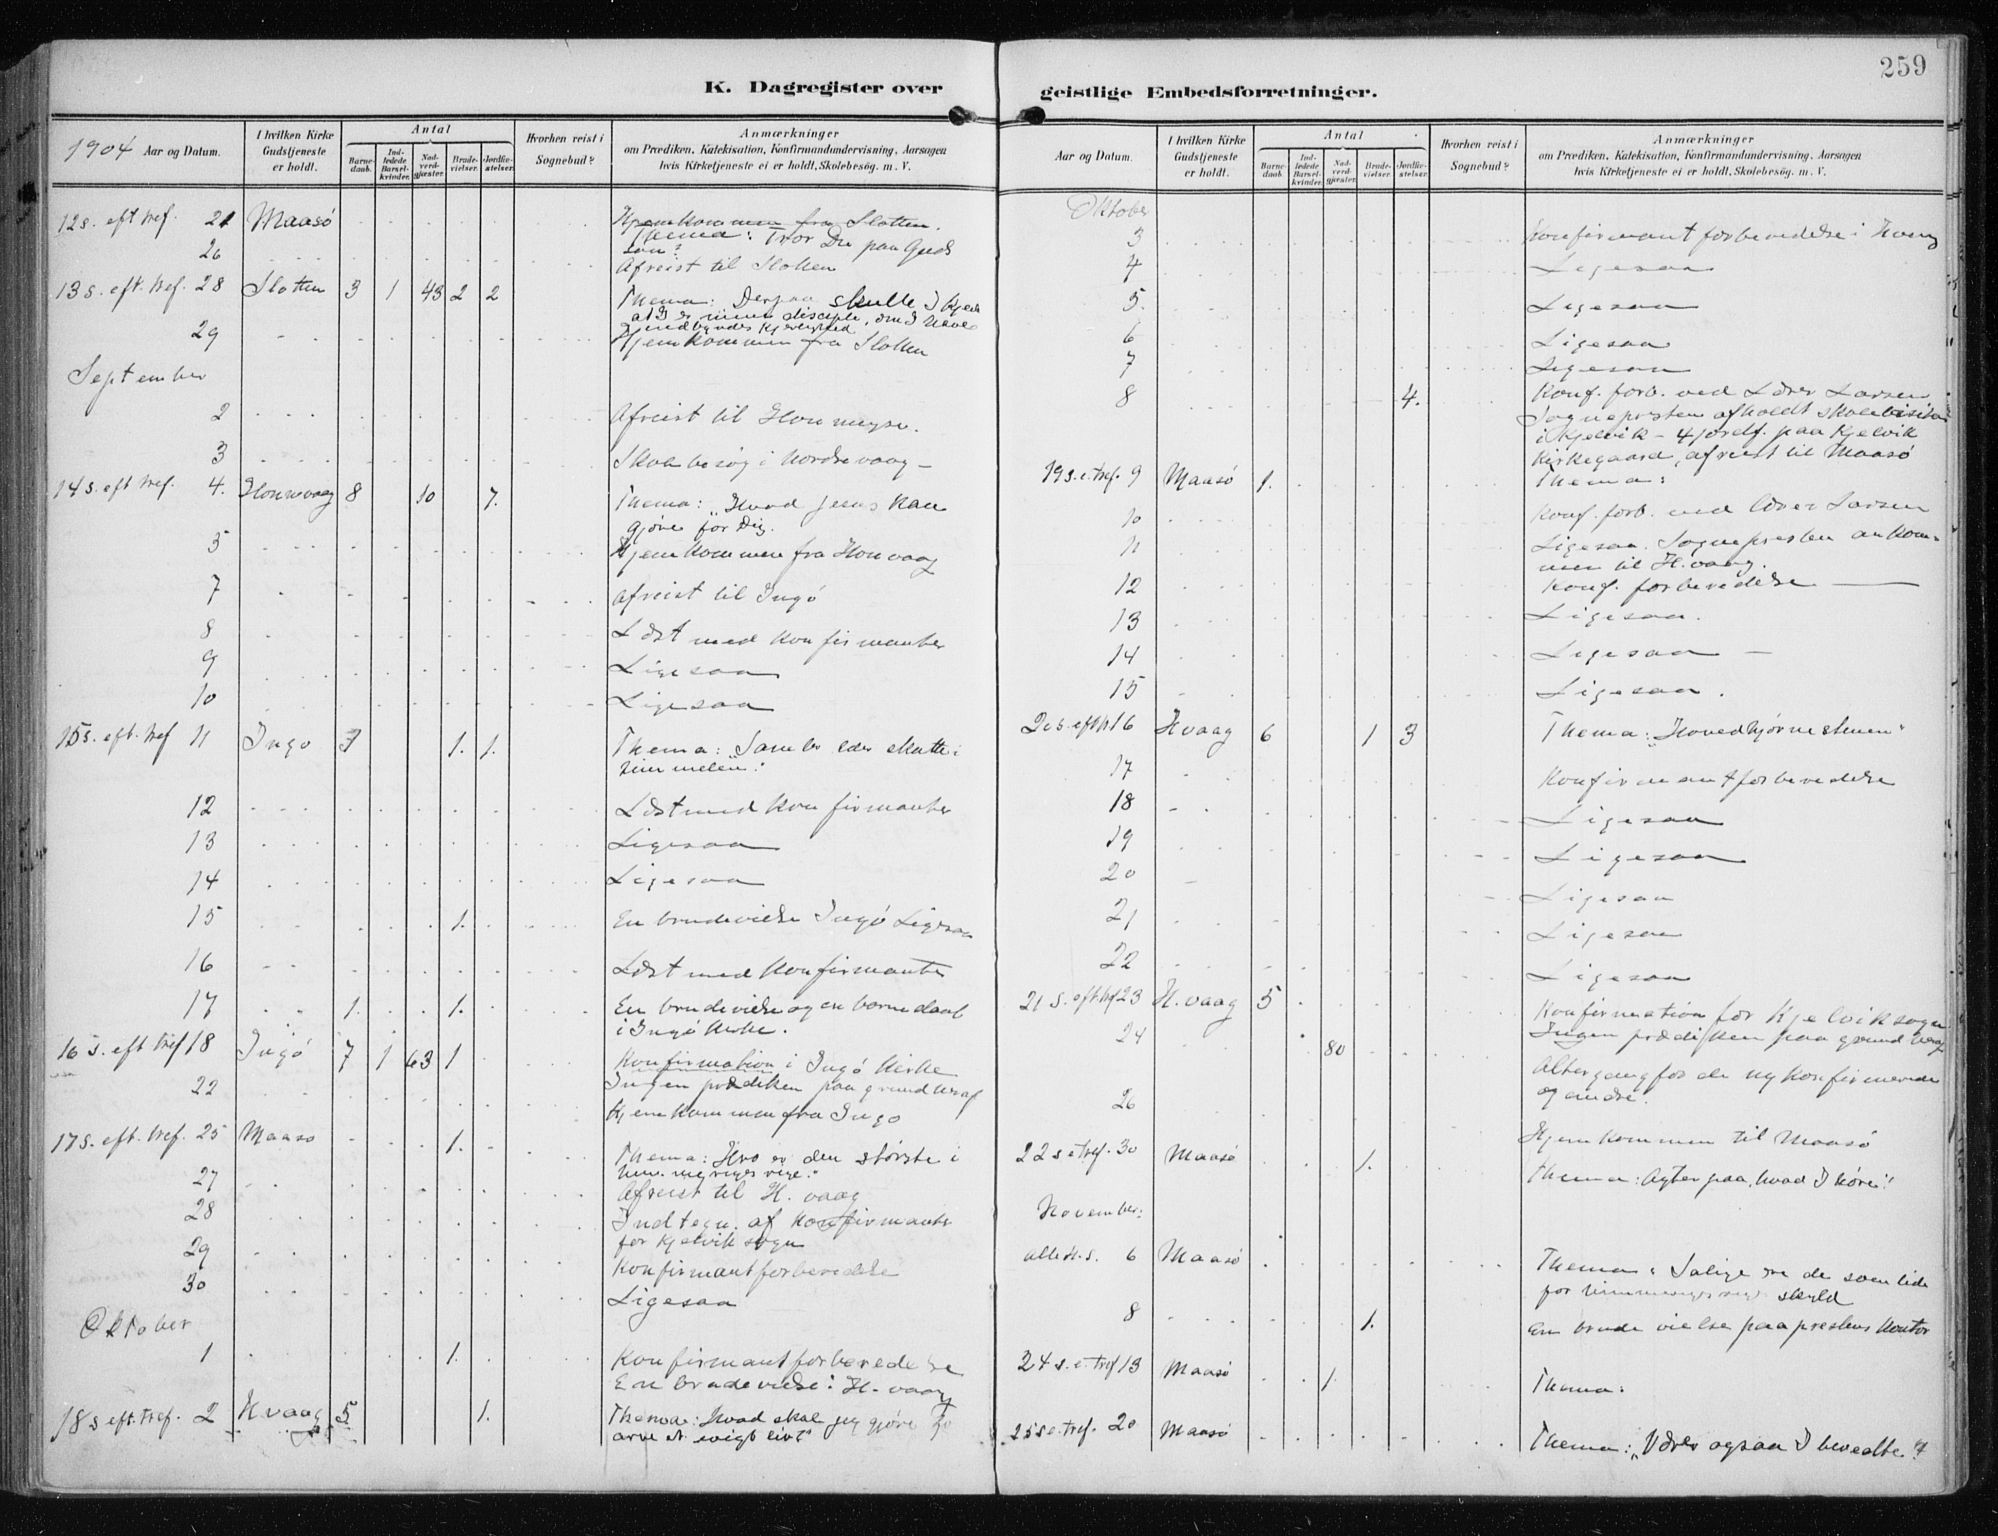 259
K. Dagregister over
geistlige Embedsforretninger.
1904 Aar og Datum.
I hvilken Kirke Gudstjeneste er holdt.
Antal
Barne-daab.
Ind-ledede Barsel-kvinder.
Nad-verd-gjæster.
Brude-vielser.
Jordfæ-stelser.
Hvorhen reist i Sognebud?
Anmærkninger
om Prædiken, Katekisation, Konfirmandundervisning, Aarsagen
hvis Kirketjeneste ei er holdt, Skolebesøg. m. V.
12 s. eft tref. 21 Maasö Hjemkommen fra Slotten.
Thema: Tror Du paa Guds
Søn?
26 Afreist til Slotten
13 s. eft. tref. 28 Slotten 3 1 43 2 2 Thema: Derpaa skulle I kjende
at I er mine disciple, om I have
indbyrdes kjærlighed
29 Hjemkommen fra Slotten
September
2 Afreist til Honningsv.
3 Skolebesøg i Nordvaag
14 s. eft tref. 4. Honnivaag 8 10 7. Thema: „Hvad Jesus kan
gjöre for Dig.
5 Hjemkommen fra Honvaag
7 Afreist til Ingö
8 Læst med konfirmanter
9 Ligesaa
10 Ligesaa
15 s. eft. tref 11 Ingö 3 1. 1. Thema: Samler eder skatte i
himmelen".
12 Læst med konfirmanter
13 Ligesaa
14 Ligesaa
15 1. En brudevielse Ingö Ligesaa
16 Læst med konfirmanter
17 1. 1. En brudevielse og en barnedaab
i Ingö Kirke.
16 s. eft tref 18 Ingö 7 1 63 1 Konfirmation i Ingö Kirke
Ingen prædiken paa grund heraf
22 Hjemkommen fra Ingö
17 s. eft. tref. 25 Maasö 1. Thema: Hvo er den største i
himmeriges rige."
27 Afreist til H. vaag
28 Indtegn. af konfirmanter
for Kjelvik sogn
29 Konfirmantforberedelse
30 Ligesaa
Oktober
1 1. Konfirmantforberedelse
En brudevielse i H. vaag
18 s eft. tref. 2 H vaag 5 1. Thema: Hvad skal jeg gjöre for
arve et evigt liv?"
Aar og Datum.
I hvilken Kirke Gudstjeneste er holdt.
Antal
Barne-daab.
Ind-ledede Barsel-kvinder.
Nad-verd-gjæster.
Brude-vielser.
Jordfæ-stelser.
Hvorhen reist i Sognebud?
Anmærkninger
om Prædiken, Katekisation, Konfirmandundervisning, Aarsagen
hvis Kirketjeneste ei er holdt, Skolebesøg. m. V.
Oktober
3 Konfirmantforberedelse i Hvaag
4 Ligesaa
5. Ligesaa
6 Ligesaa
7 Ligesaa
8 4. Konf. forb. ved Lærer Larsen
Sognepresten afholdt skolevisitas
i Kjelvik - 4 jordf. paa Kjelvik
Kirkegaard, afreist til Maasö
19 s. e. tref. 9 Maasö 1. Thema:
10 Konf. forb. ved lærer Larsen
11 Ligesaa. Sognepresten ankom-
men til H. vaag.
12 Konf. forberedelse
13 Ligesaa.
14 Ligesaa
15 Ligesaa.
20 s. eft tr 16 H vaag 6 1 3 Thema: „Hovedhjörnestenen"
17 Konfirmantforberedelse
18 Ligesaa
19 Ligesaa
20 Ligesaa
21 Ligesaa
22 Ligesaa
21 s. eft tref 23 H. vaag 5 Konfirmation for Kjelvik sogn
Ingen prædiken paa grund heraf
24 80 Altergang for de ny konfirmerede
og andre.
26 Hjemkommen til Maasö
22 s e tref. 30 Maasö 1. Thema: Agter paa, hvad I höre!
November:
alle H. s. 6 Maasö Thema: Salige ere de som lide
for himmeriges skyld
8 1. En brudevielse paa prestens kontor
24 s. e. tref 13 Maasö 1. Thema:
25 s e. tref. 20 Maasö Thema: „Værer ogsaa I beredte"